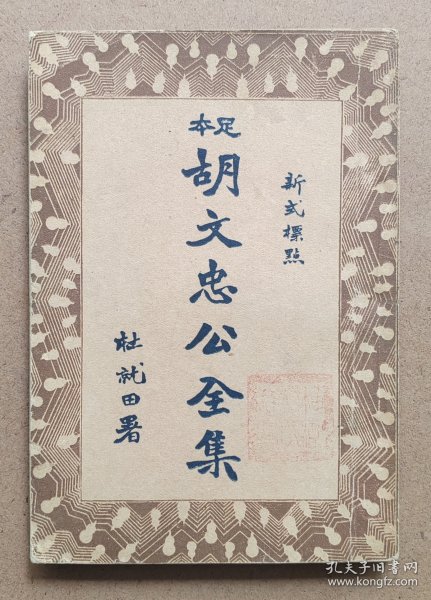 新式標點
足本
胡文忠公全集
杜就田署
孔夫子旧书网
www.kongfz.com